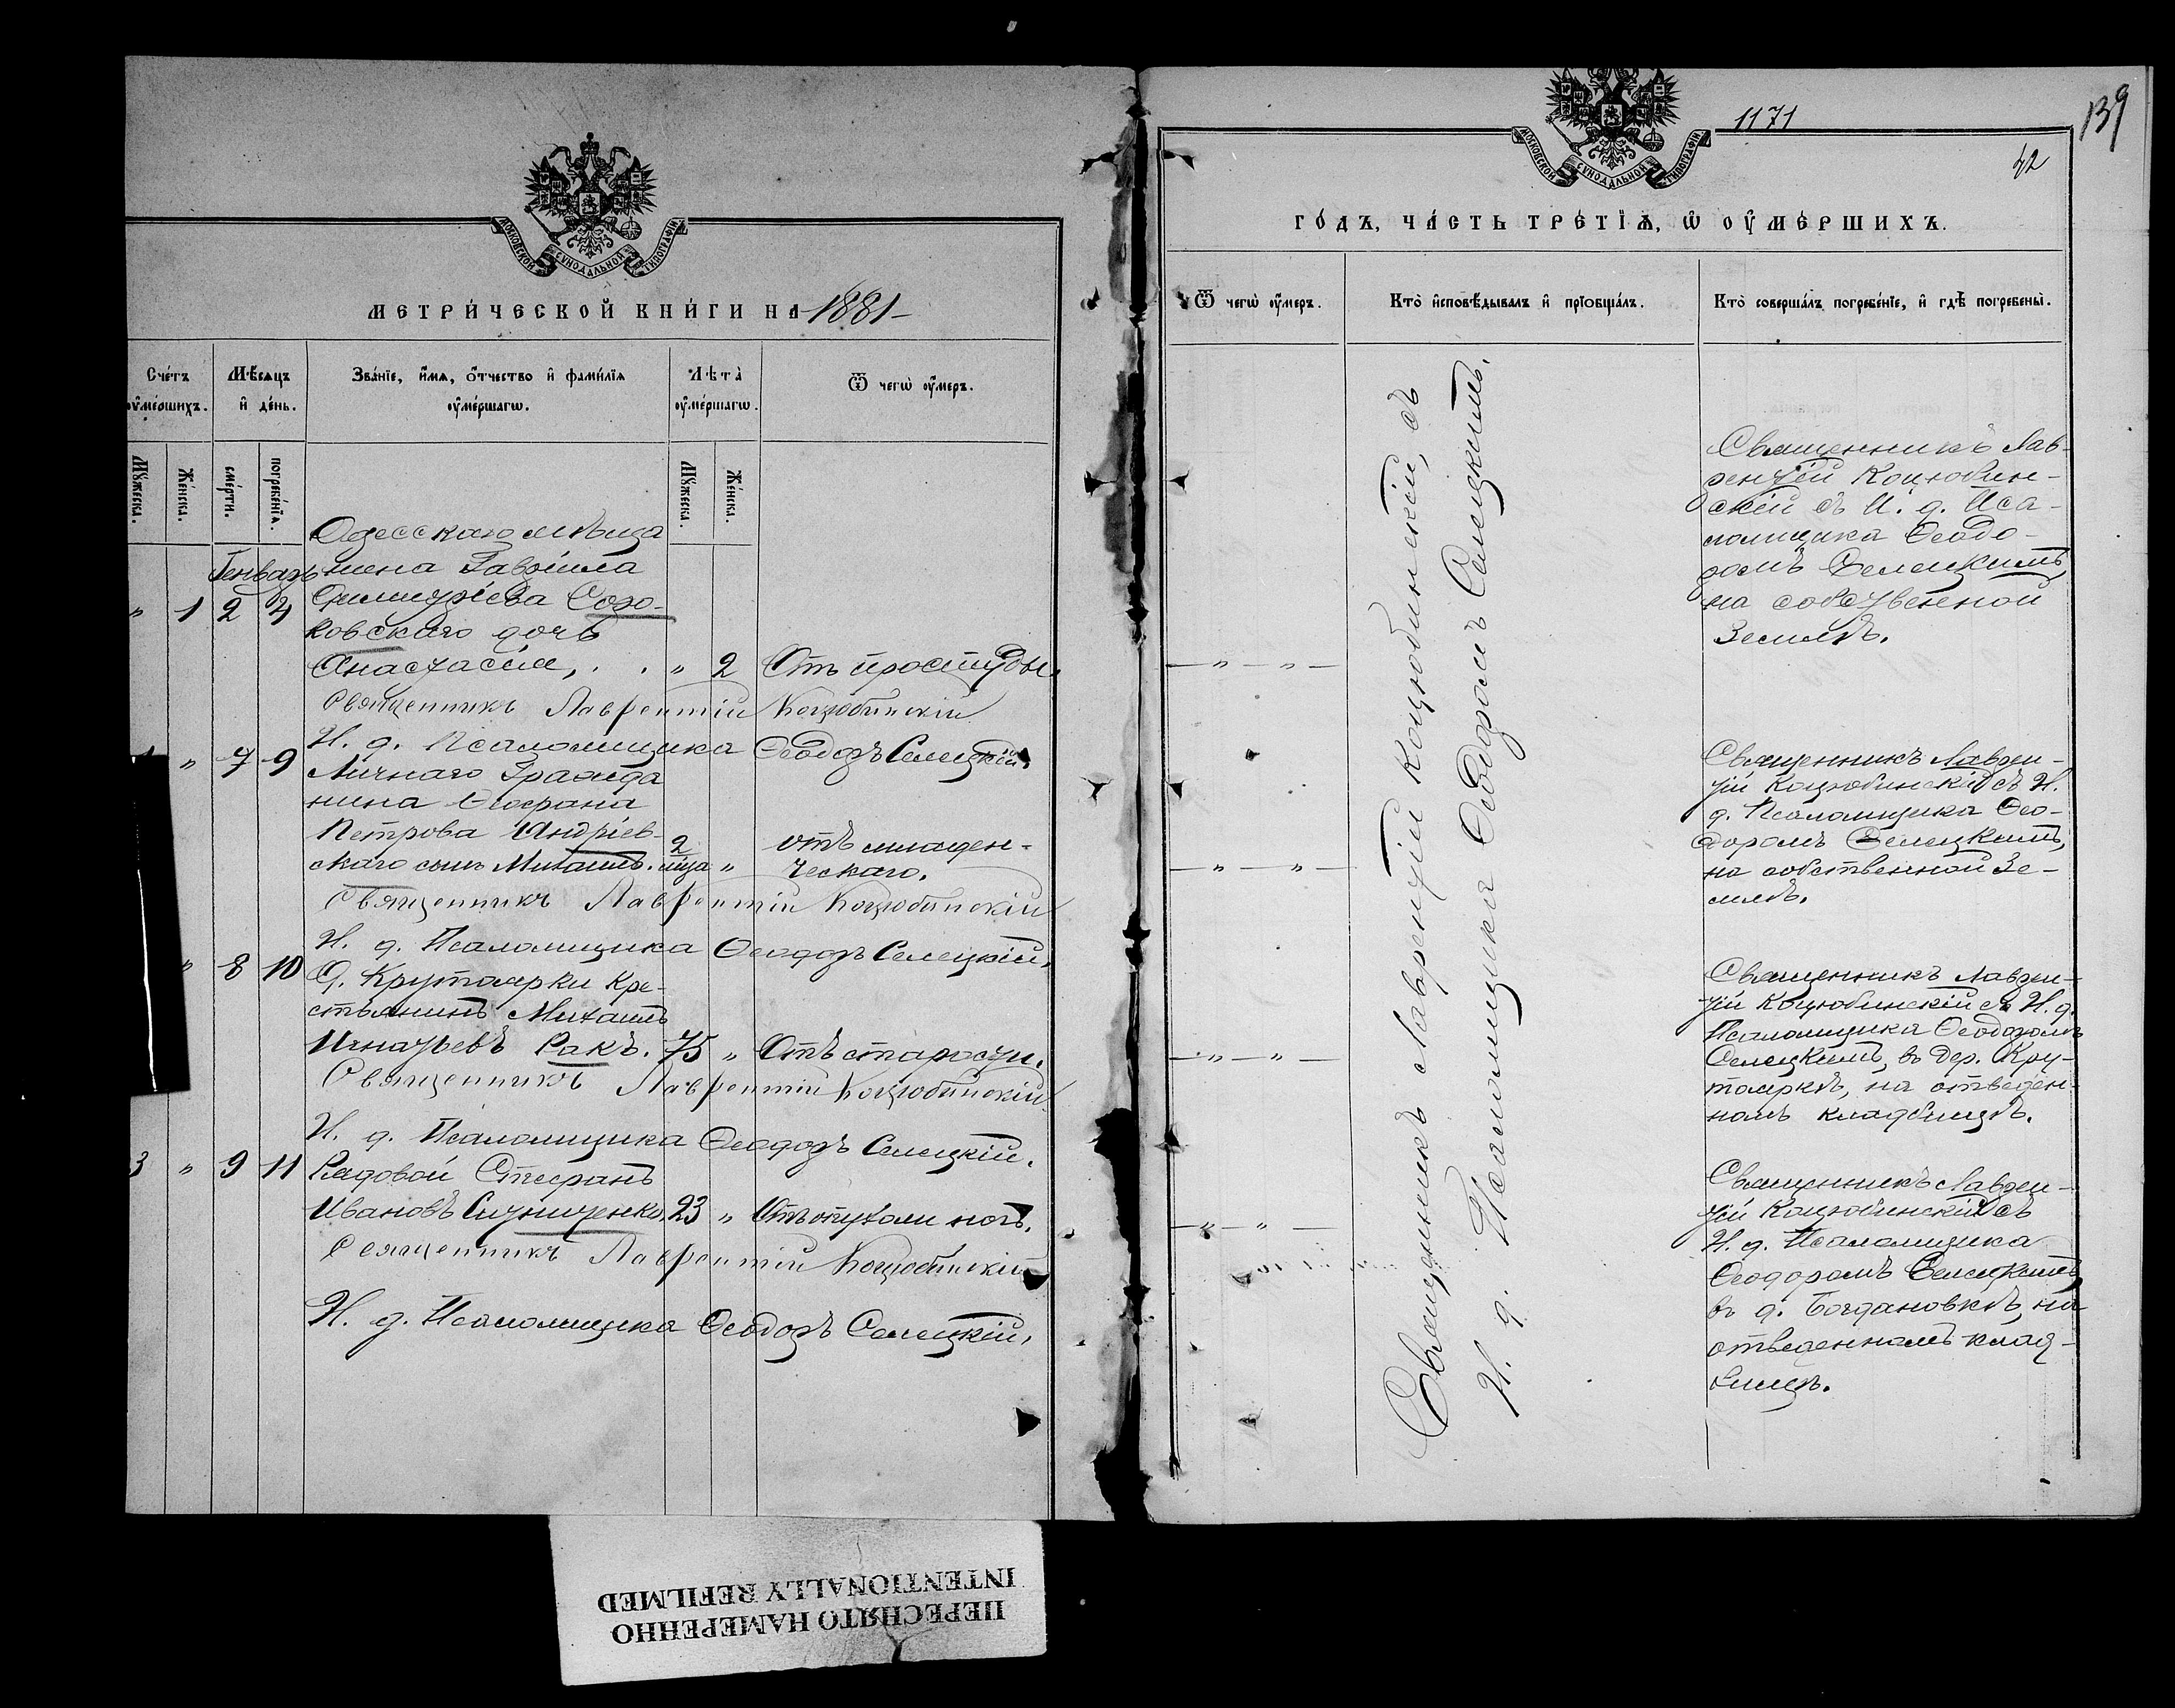 МОСКОВСКОЙ СѴНОДАЛЬНОЙ ТИПОГРАФІИ
МЕТРИ́ЧЕСКОЙ КНИ́ГИ НА 1881
Сче́тъ ᲂу҆ме́ршихъ.
Мѣ́сяцъ и҆ де́нь.
Зва́нїе, и҆́мя, ѻ҆́тчество и҆ фами́лїя ᲂу҆ме́ршагѡ.
Лѣта̀ ᲂу҆ме́ршагѡ.
Ѿ чегѡ̀ ᲂу҆́меръ.
Мꙋ́жеска.
Же́нска.
сме́рти.
погребе́нїя.
Мꙋ́жеска.
Же́нска.
Одесскаго мѣща
Генварь нина Гавріила
" 1 2 4 Димитріева Соро-
ковскаго дочь
Анастасія, . . " 2 Отъ простуды.
Священникъ Лаврентій Коцюбинскій
И. д. Псаломщика Ѳеодоръ Селецкій,
" 7 9 Личнаго Гражда
нина Ѳеофана
Петрова Андріев-
скаго сынъ Михаилъ. 2 мца " отъ младен-
ческаго.
Священникъ Лаврентій Коцюбинскій
И. д. Псаломщика Ѳеодоръ Селецкій,
" 8 10 Д. Крутоярки Кре-
стьянинъ Михаилъ
Игнатьевъ Ракъ. 75 " Отъ старости.
Священникъ Лаврентій Коцюбинскій
И. д. Псаломщика Ѳеодоръ Селецкій.
3 " 9 11 Рядовой Стефанъ
Ивановъ Ситниченко. 23 " Отъ опухоли ногъ.
Священникъ Лаврентій Коцюбинскій
И. д. Псаломщика Ѳеодоръ Селецкій,
1171
139
42
МОСКОВСКОЙ СѴНОДАЛЬНОЙ ТИПОГРАФІИ
ГО́ДЪ, ЧА́СТЬ ТРЕ́ТЇѦ, Ѡ҆ ОУ҆МЕ́РШИХЪ.
Ѿ чегѡ̀ ᲂу҆́меръ.
Кто̀ и҆сповѣ́дывалъ и҆ прїѻбща́лъ.
Кто̀ соверша́лъ погребе́нїе, и҆ гдѣ̀ погребены̀.
— " — " —
— " — " —
— " — " —
— " — " —
Священникъ Лаврентій Коцюбинскій, съ
И. д. Псаломщика Ѳеодоромъ Селецкимъ.
Священникъ Лав-
рентій Коцюбин-
скій съ И. д. Пса-
ломщика Ѳеодо-
ромъ Селецкимъ,
на собственной
Землѣ.
Священникъ Лаврен-
тій Коцюбинскій съ И.
д. Псаломщика Ѳео-
доромъ Селецкимъ,
на собственной Зе-
млѣ.
Священникъ Лаврен-
тій Коцюбинскій съ И. д.
Псаломщика Ѳеодоромъ
Селецкимъ, въ дер. Кру-
тояркѣ, на отведен-
номъ кладбищѣ.
Священникъ Лаврен-
тій Коцюбинскій съ
И. д. Псаломщика
Ѳеодоромъ Селецкимъ,
въ д. Богдановкѣ, на
отведенномъ клад-
бищѣ.
ПЕРЕСНЯТО НАМЕРЕННО
INTENTIONALLY REFILMED